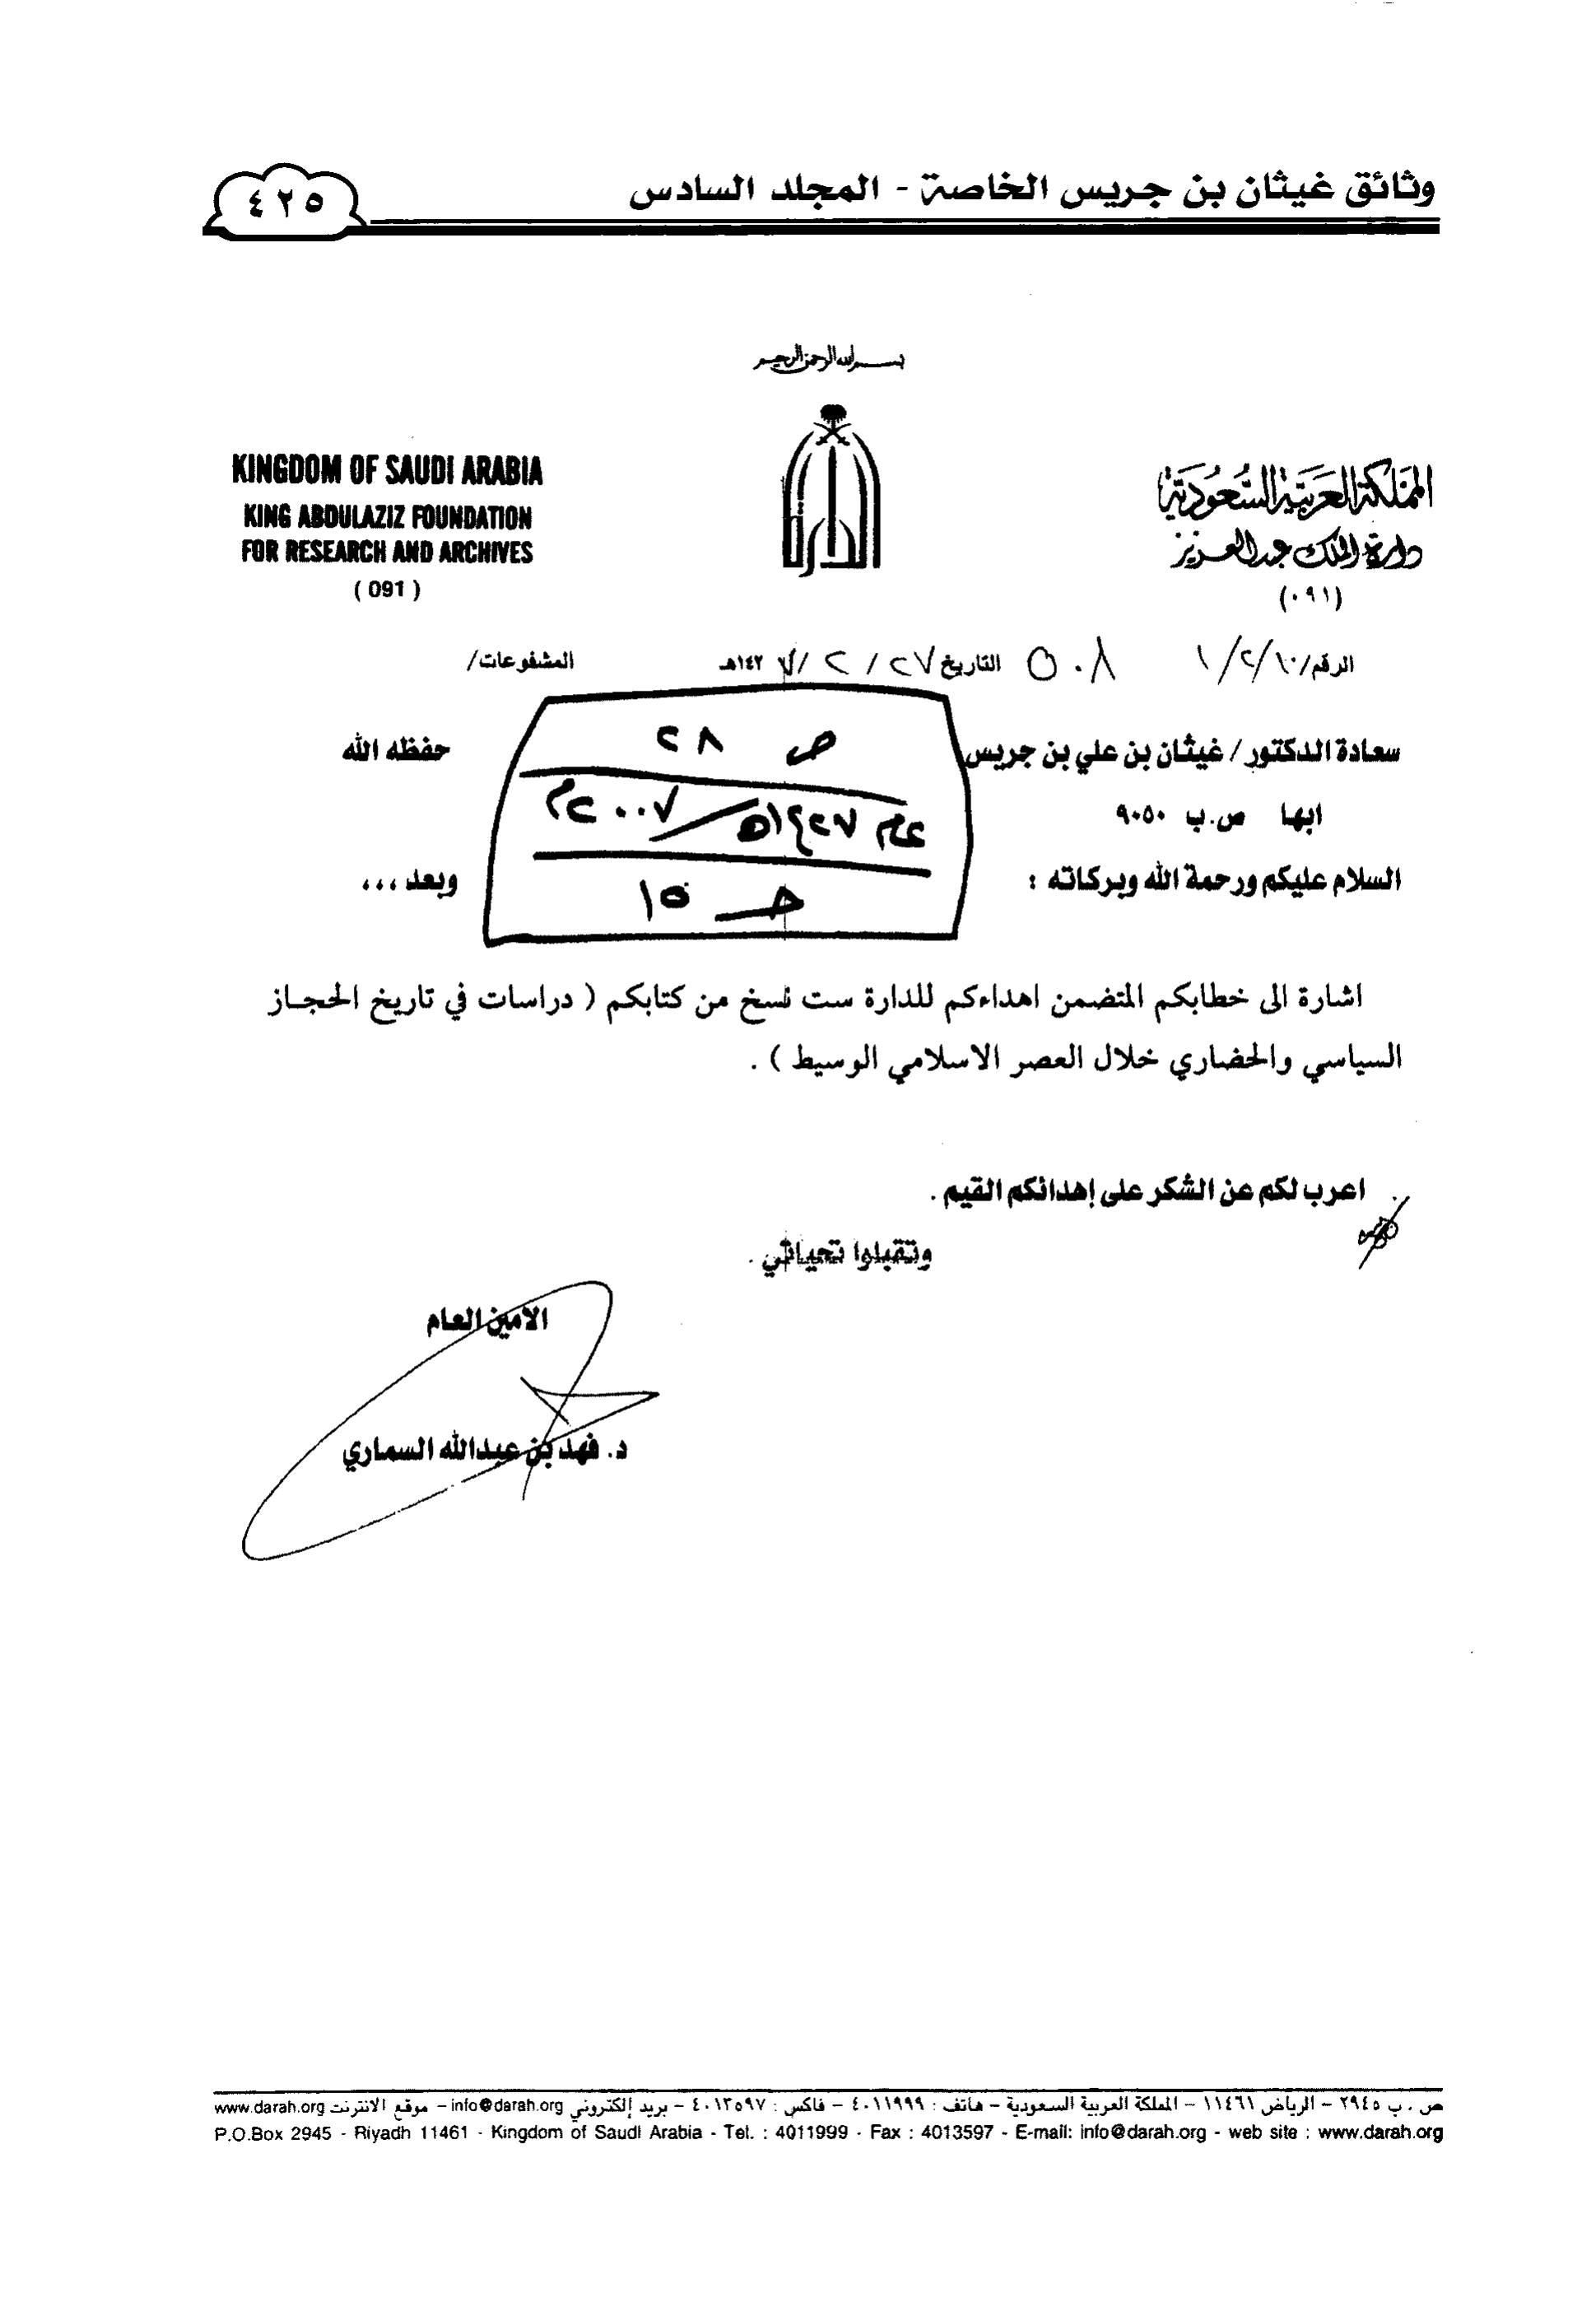 وثائق غيثان بن جريس الخاصة - المجلد السادس
٤٢٥
بسم الله الرحمن الرحيم
المملكة العربية السعودية
دارة الملك عبدالعزيز
(٠٩١)
KINGDOM OF SAUDI ARABIA
KING ABDULAZIZ FOUNDATION
FOR RESEARCH AND ARCHIVES
( 091 )
الرقم/١٠/٢/١ ٥٠٨ التاريخ ٢٧/ ٢ /١٤٢٧هـ المشفوعات/
ص ٢٨
عام ١٤٢٧هـ/٢٠٠٧م
جـ ١٥
سعادة الدكتور / غيثان بن علي بن جريس حفظه الله
ابها ص.ب ٩٠٥٠
السلام عليكم ورحمة الله وبركاته : وبعد ،،،
اشارة الى خطابكم المتضمن اهداءكم للدارة ست نسخ من كتابكم ( دراسات في تاريخ الحجاز
السياسي والحضاري خلال العصر الاسلامي الوسيط ) .
اعرب لكم عن الشكر على إهدائكم القيم .
وتقبلوا تحياتي .
الامين العام
د. فهد بن عبدالله السماري
ص . ب ٢٩٤٥ – الرياض ١١٤٦١ – المملكة العربية السعودية – هاتف : ٤٠١١٩٩٩ – فاكس : ٤٠١٣٥٩٧ – بريد إلكتروني info@darah.org – موقع الانترنت www.darah.org
P.O.Box 2945 - Riyadh 11461 - Kingdom of Saudi Arabia - Tel. : 4011999 - Fax : 4013597 - E-mail: info@darah.org - web site : www.darah.org